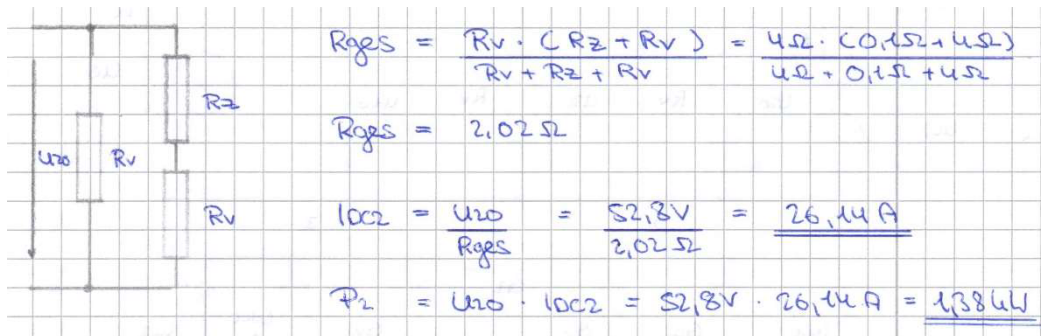 Rges = Rv · (Rz + Rv) / Rv + Rz + Rv = 4Ω · (0,1Ω + 4Ω) / 4Ω + 0,1Ω + 4Ω
Rz
Rges = 2,02 Ω
U20 Rv
Rv
IDC2 = U20 / Rges = 52,8V / 2,02 Ω = 26,14 A
P2 = U20 · IDC2 = 52,8V · 26,14 A = 1,38 kW